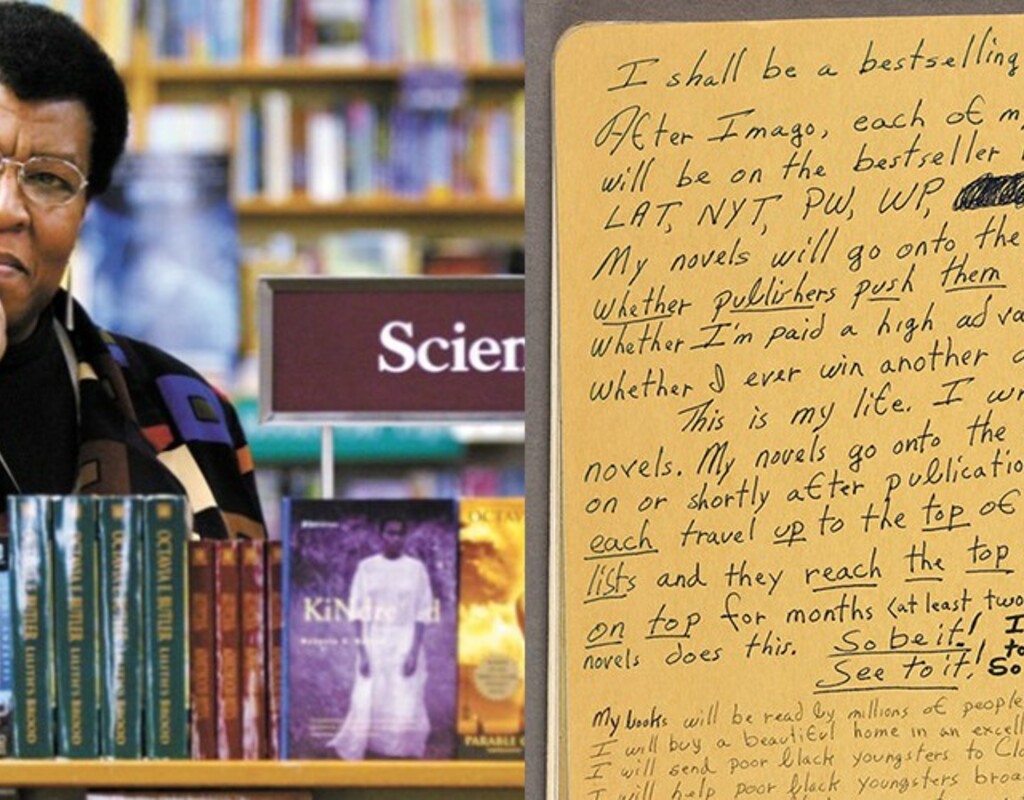 Scien
OCTAVIA E. BUTLER LILITH'S BROOD
OCTAVIA E. BUTLER LILITH'S BROOD
OCTAVIA E. BUTLER LILITH'S BROOD
OCTAVIA E. BUTLER LILITH'S BROOD
KiNdred
OCTAV
PARABLE
I shall be a bestselling
After Imago, each of m
will be on the bestseller
LAT, NYT, PW, WP,
My novels will go onto the
whether publishers push them
whether I'm paid a high adva
whether I ever win another
This is my life. I wr
novels. My novels go onto the
on or shortly after publicatio
each travel up to the top of
lists and they reach the top
on top for months (at least two
novels does this. So be it! I
See to it! So
My books will be read by millions of people
I will buy a beautiful home in an excell
I will send poor black youngsters to Cla
I will help poor black youngsters broa